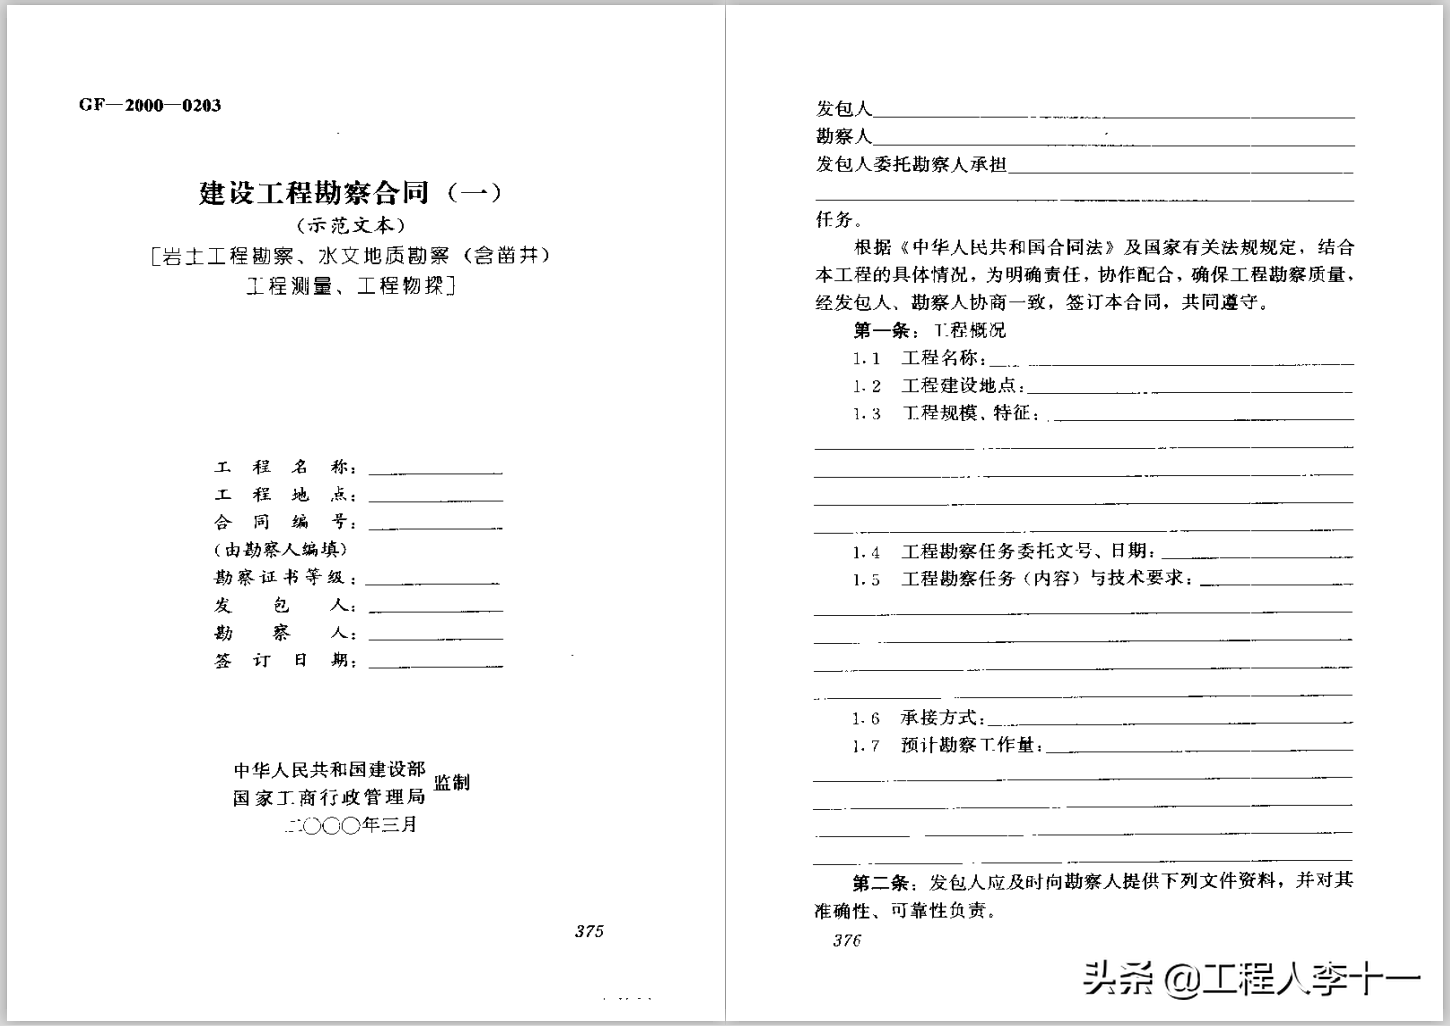 GF—2000—0203
建设工程勘察合同（一）
（示范文本）
[岩土工程勘察、水文地质勘察（含凿井）
工程测量、工程物探]
工程名称：
工程地点：
合同编号：
（由勘察人编填）
勘察证书等级：
发包人：
勘察人：
签订日期：
中华人民共和国建设部
国家工商行政管理局
监制
二〇〇〇年三月
375
发包人
勘察人
发包人委托勘察人承担
任务。
根据《中华人民共和国合同法》及国家有关法规规定，结合
本工程的具体情况，为明确责任，协作配合，确保工程勘察质量，
经发包人、勘察人协商一致，签订本合同，共同遵守。
第一条：工程概况
1.1 工程名称：
1.2 工程建设地点：
1.3 工程规模、特征：
1.4 工程勘察任务委托文号、日期：
1.5 工程勘察任务（内容）与技术要求：
1.6 承接方式：
1.7 预计勘察工作量：
第二条：发包人应及时向勘察人提供下列文件资料，并对其
准确性、可靠性负责。
376
头条 @工程人李十一